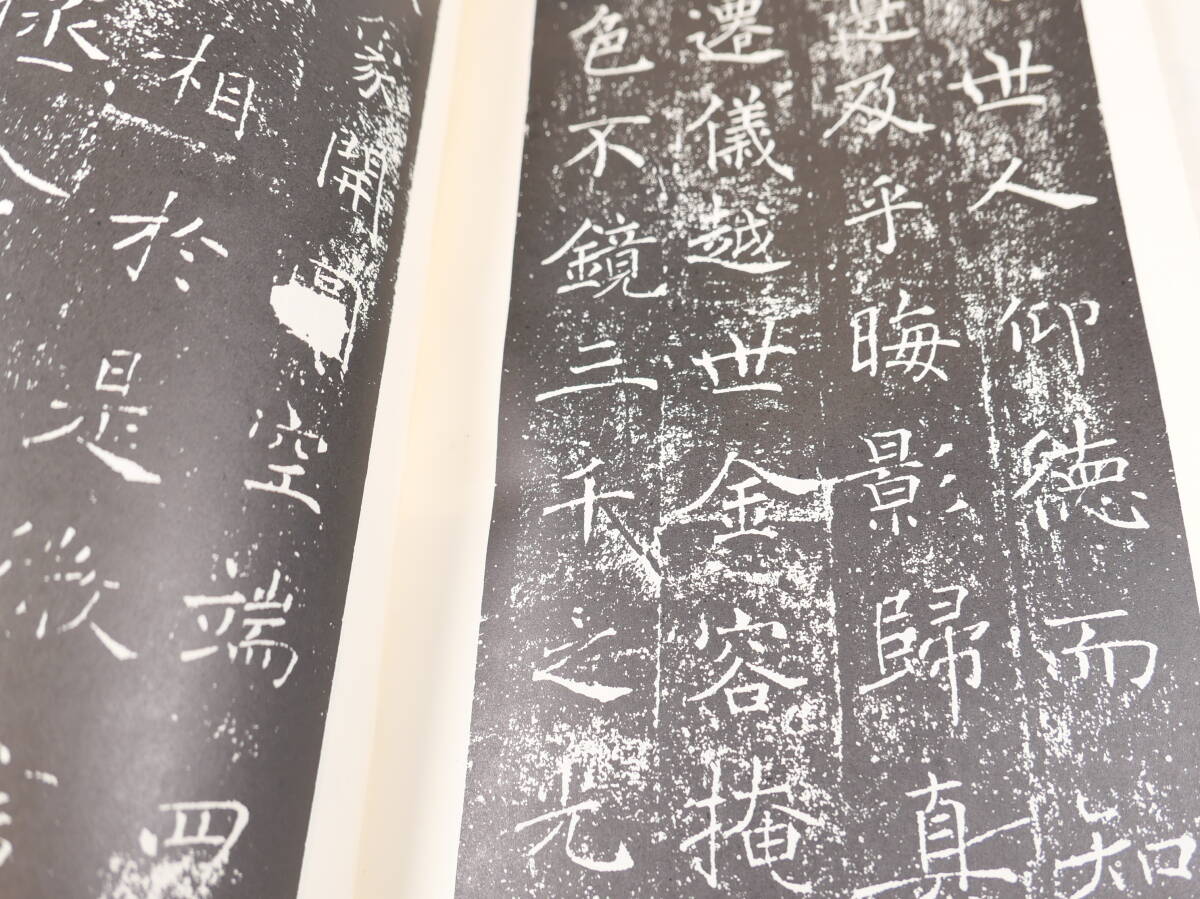 世人仰德而知
遵及乎晦影歸真
遷儀越世金容掩
色不鏡三千之光
象開空端四
相於是微